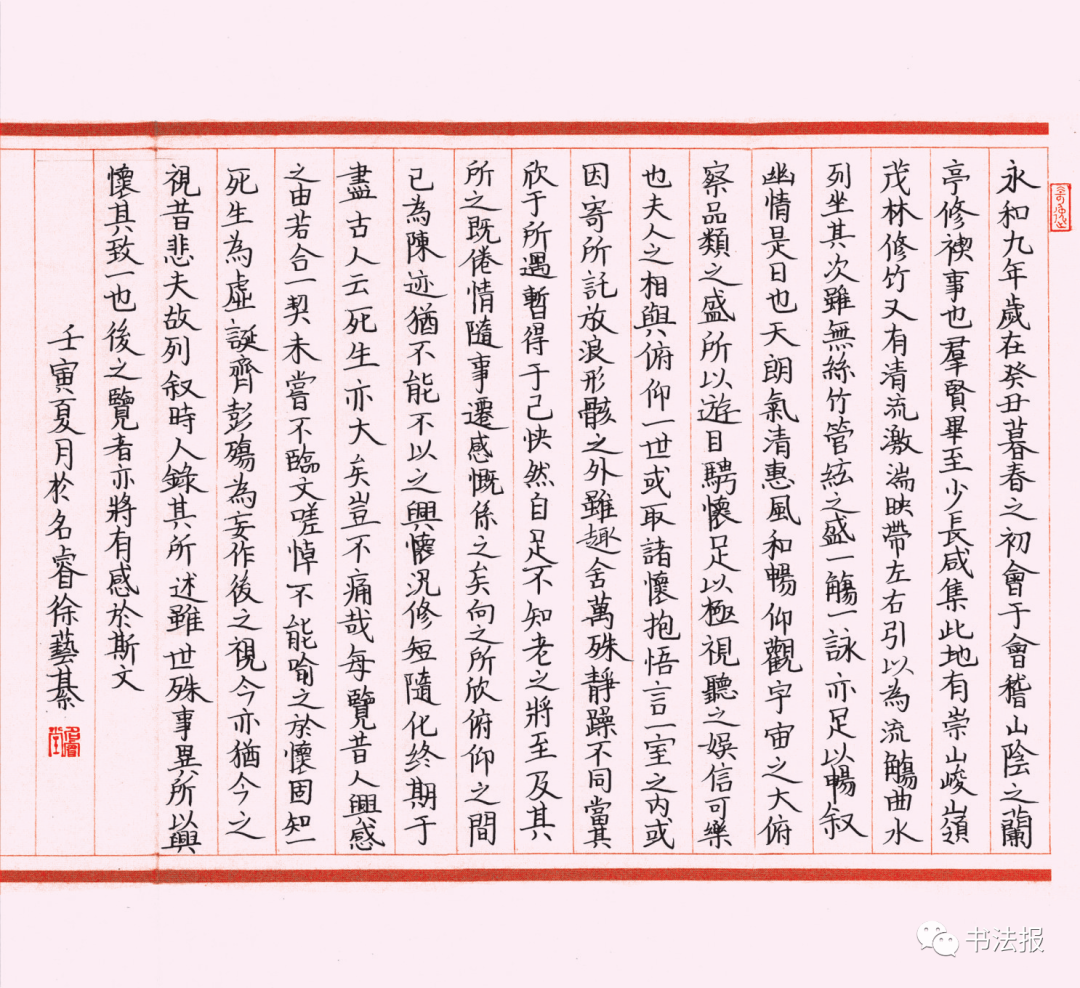 永和九年歲在癸丑暮春之初會于會稽山陰之蘭
亭修禊事也羣賢畢至少長咸集此地有崇山峻嶺
茂林修竹又有清流激湍映帶左右引以為流觴曲水
列坐其次雖無絲竹管絃之盛一觴一詠亦足以暢叙
幽情是日也天朗氣清惠風和暢仰觀宇宙之大俯
察品類之盛所以遊目騁懷足以極視聽之娛信可樂
也夫人之相與俯仰一世或取諸懷抱悟言一室之内或
因寄所託放浪形骸之外雖趣舍萬殊靜躁不同當其
欣于所遇暫得于己快然自足不知老之將至及其
所之既倦情隨事遷感慨係之矣向之所欣俯仰之間
已為陳迹猶不能不以之興懷況修短隨化终期于
盡古人云死生亦大矣豈不痛哉每覽昔人興感
之由若合一契未嘗不臨文嗟悼不能喻之於懷固知一
死生為虛誕齊彭殤為妄作後之視今亦猶今之
視昔悲夫故列叙時人錄其所述雖世殊事異所以興
懷其致一也後之覽者亦將有感於斯文
壬寅夏月於名睿徐藝綦
书法报